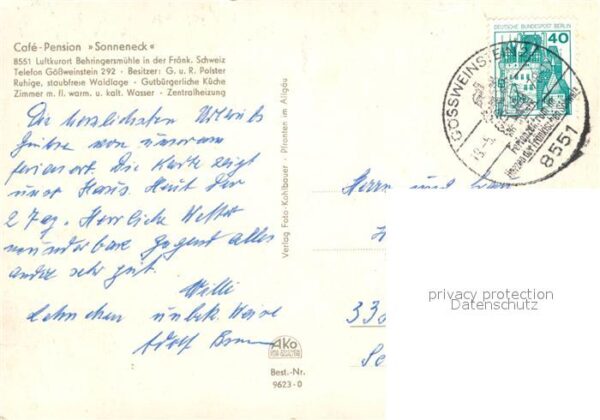 Café-Pension »Sonneneck«
8551 Luftkurort Behringersmühle in der Fränk. Schweiz
Telefon Gößweinstein 292 · Besitzer: G. u. R. Polster
Ruhige, staubfreie Waldlage · Gutbürgerliche Küche
Zimmer m. fl. warm. u. kalt. Wasser · Zentralheizung
DEUTSCHE BUNDESPOST BERLIN
40
GÖSSWEINSTEIN
8551
Die herzlichsten Urlaubs
Grüße von unserem
ferienort. Die Karte zeigt
unser Haus Heut der
2 Tag. Herrliche Wetter
wunderbare Gegent alles
andre sehr gut.
Willi
Adolf
Verlag Foto-Kohlbauer · Pfronten im Allgäu
Herrn und Frau
330
AKO
Best.-Nr.
9623-0
privacy protection
Datenschutz